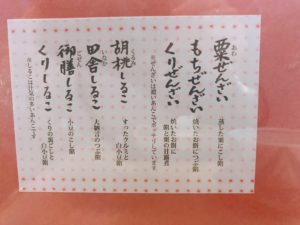 粟ぜんざい
あわ
蒸した粟にこし餡
もちぜんざい
焼いたお餅につぶ餡
くりぜんざい
焼いたお餅に
餡と栗の甘露煮
※ぜんざいは濃いあんこでさっくりしています
胡桃しるこ
くるみ
すったクルミと
白小豆餡
田舎しるこ
いなか
大納言のつぶ餡
御膳しるこ
ごぜん
小豆のこし餡
くりしるこ
くりの裏ごしと
白小豆餡
※しるこは汁気の多いあんこです